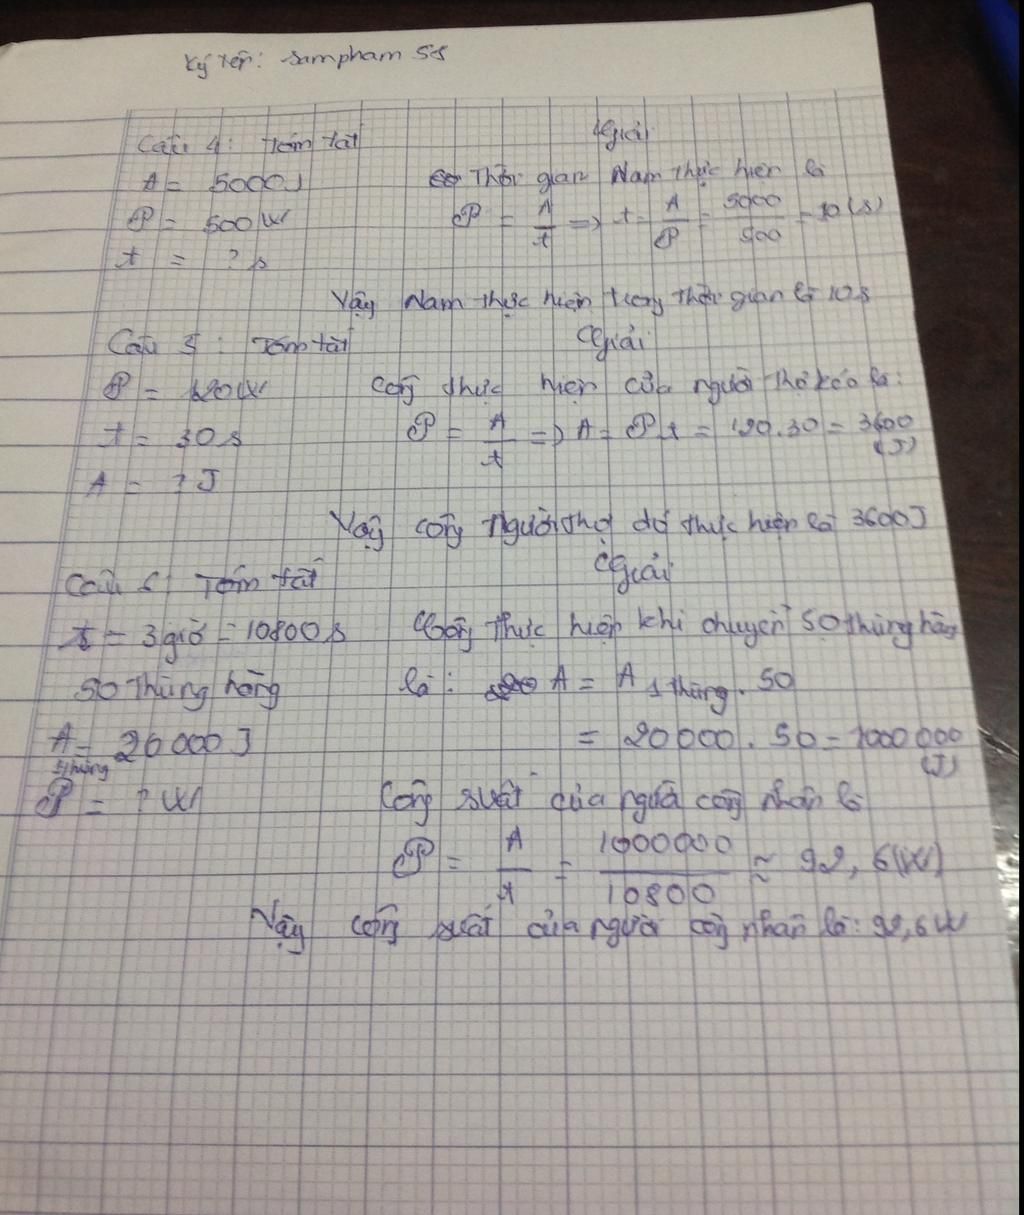 Ký tên: sampham SS
Câu 4: Tóm tắt
Giải
A = 5000J
Thời gian Nam thực hiện là
P = 500W
P = A/t => t = A/P = 5000/500 = 10 (s)
t = ? s
Vậy Nam thực hiện trong thời gian là 10s
Câu 5: Tóm tắt
Giải
P = 120W
Công thực hiện của người thợ kéo là:
t = 30s
P = A/t => A = P.t = 120.30 = 3600 (J)
A = ? J
Vậy công người thợ đó thực hiện là 3600J
Câu 6: Tóm tắt
Giải
t = 3 giờ = 10800s
Công thực hiện khi chuyển 50 thùng hàng
50 thùng hàng
là: A = A 1 thùng . 50
A 1 thùng = 20000J
= 20000. 50 = 1000000 (J)
P = ? W
Công suất của người công nhân là
P = A/t = 1000000/10800 ≈ 92,6(W)
Vậy công suất của người công nhân là: 92,6W